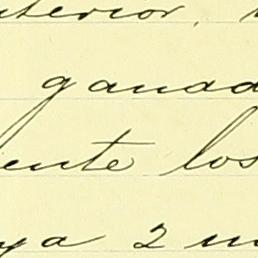 nterior,
ganad
iente los
ya 2 m